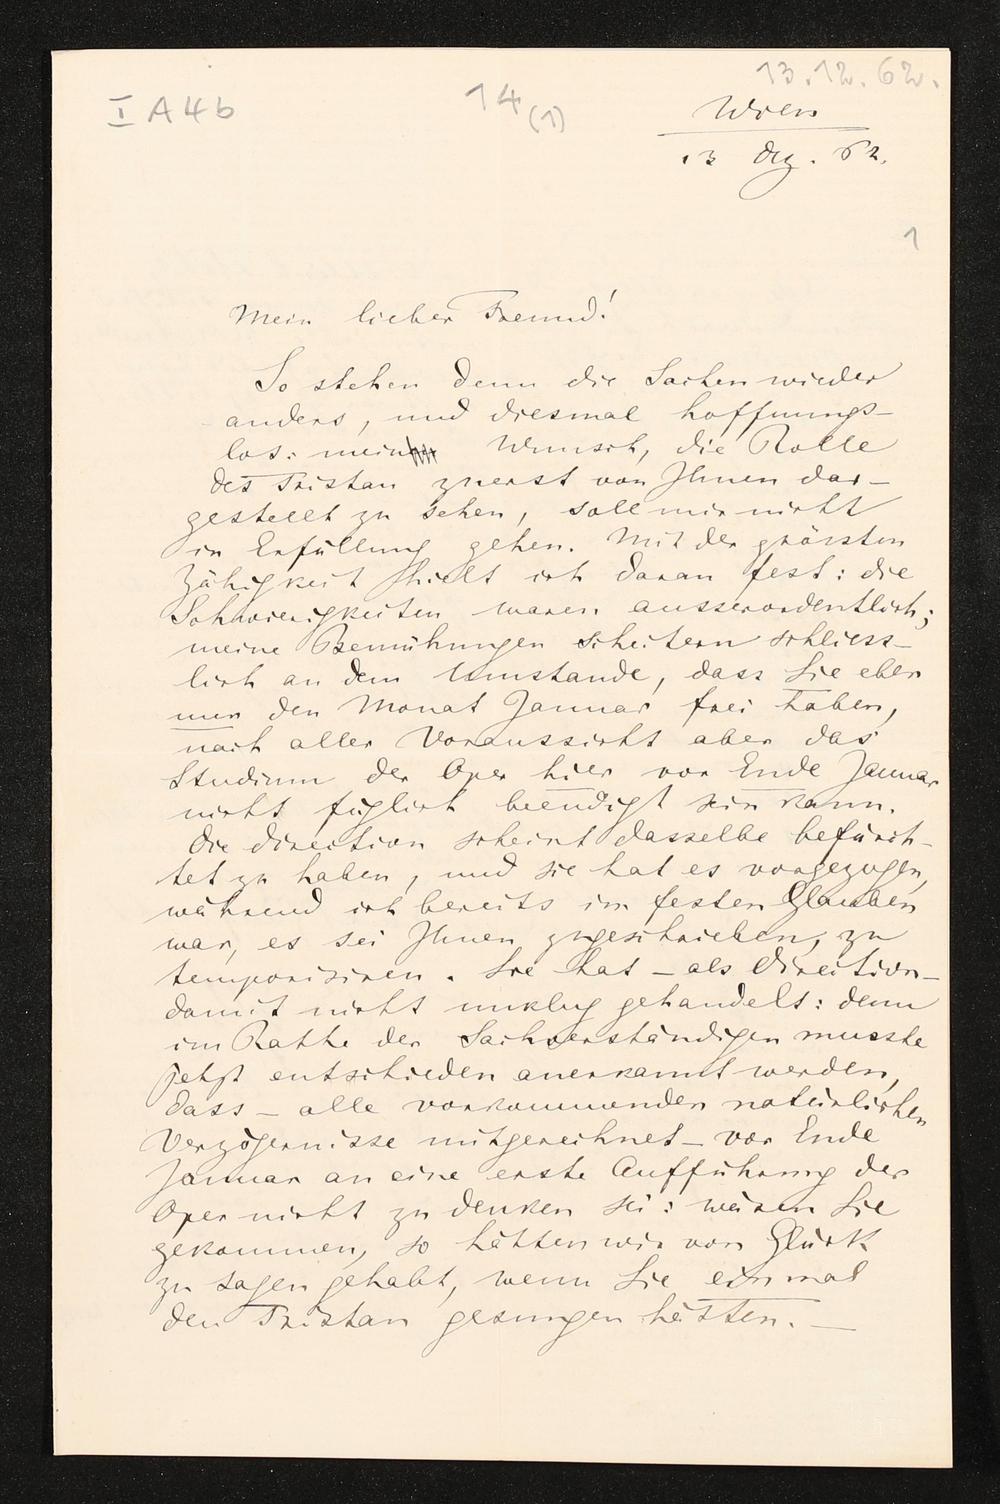 13.12.62.
I A4b
14 (1)
Wien
13 Dez. 62.
1
Mein lieber Freund!
So stehen denn die Sachen wieder
anders, und diesmal hoffnungs-
los: mein Wunsch, die Rolle
des Tristan zuerst von Ihnen dar-
gestellt zu sehen, soll mir nicht
in Erfüllung gehen. Mit der grössten
Zähigkeit hielt ich daran fest: die
Schwierigkeiten waren ausserordentlich;
meine Bemühungen scheitern schliess-
lich an dem Umstande, dass Sie eben
nur den Monat Januar frei haben,
nach aller Voraussicht aber das
Studium der Oper hier vor Ende Januar
nicht füglich beendigt sein kann.
Die Direction scheint dasselbe befürch-
tet zu haben, und sie hat es vorgezogen,
während ich bereits im festen Glauben
war, es sei Ihnen zugeschrieben, zu
temporisiren. Sie hat – als Direction –
damit nicht unklug gehandelt: denn
im Rathe der Sachverständigen musste
jetzt entschieden anerkannt werden,
dass – alle vorkommenden natürlichen
Verzögernisse mitgerechnet – vor Ende
Januar an eine erste Aufführung der
Oper nicht zu denken sei: wären Sie
gekommen, so hätten wir von Glück
zu sagen gehabt, wenn Sie einmal
den Tristan gesungen hätten. –